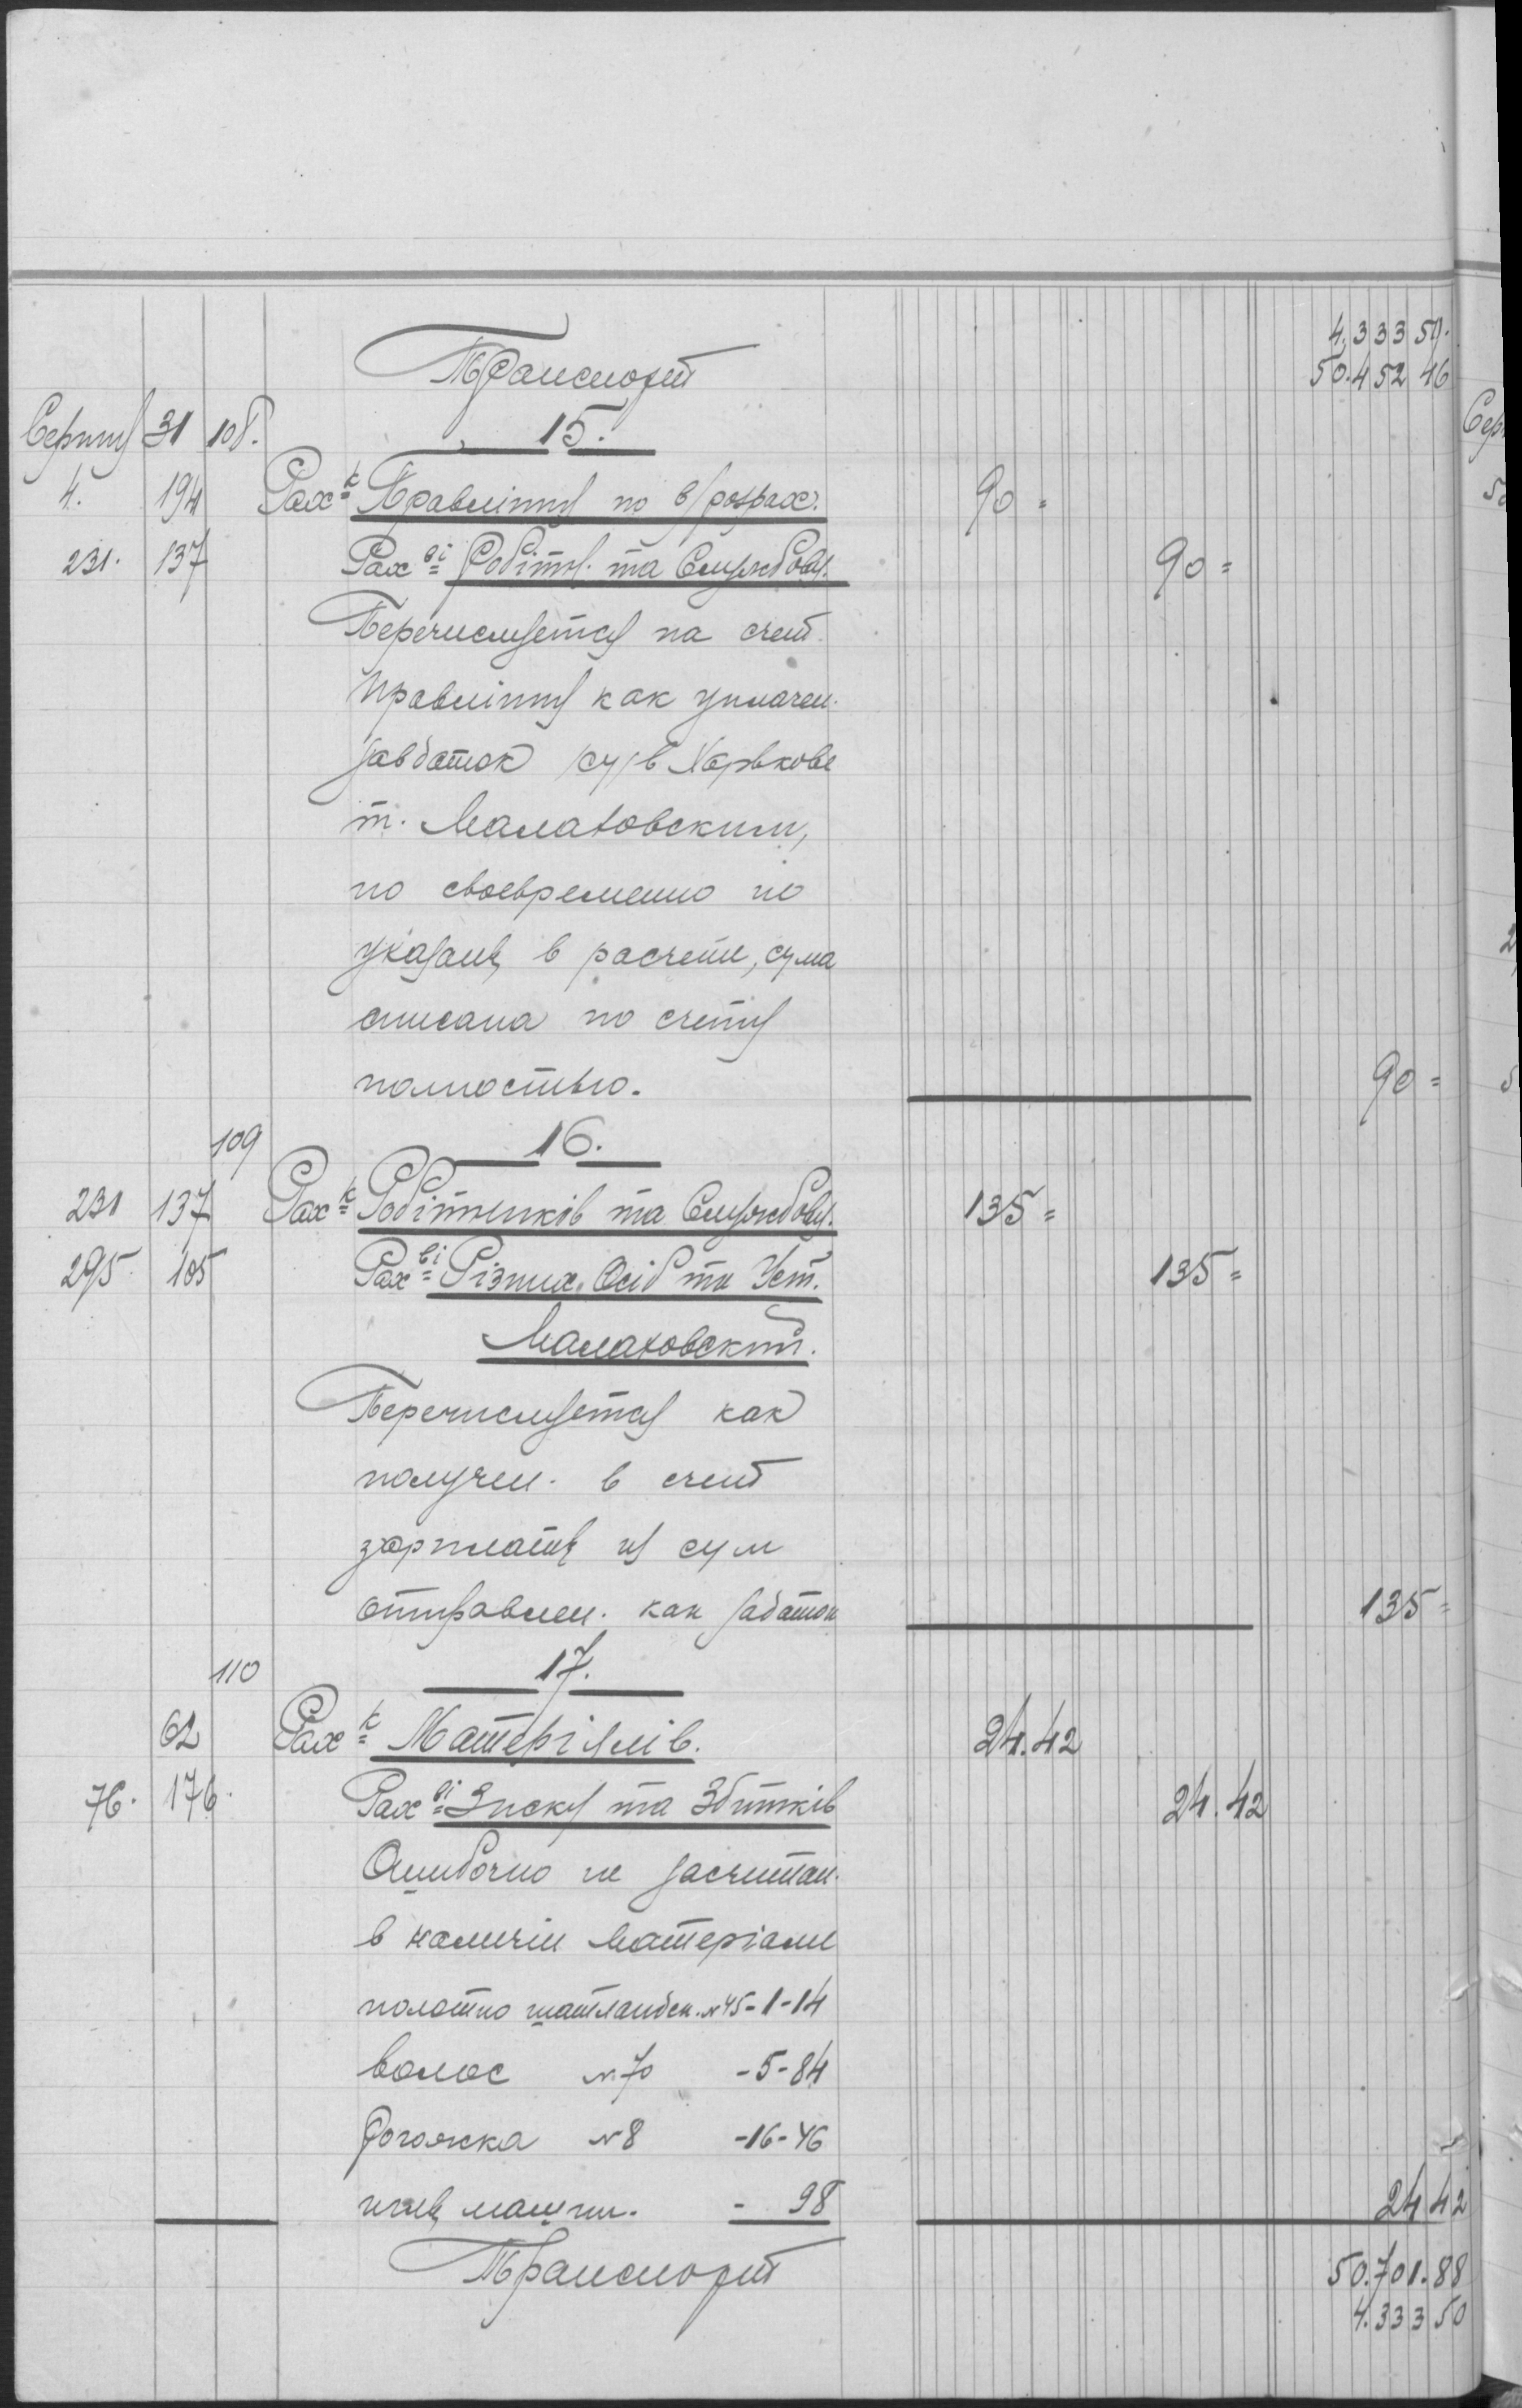 4.333 50.
Транспорт 50.452 46
Серпня 31 108. 15.
4. 194 Рах к Правління по в/розрах. 90 =
231. 137 Рах ві Робітн. та Службов. 90 =
Перечисляется на счет
Правління как уплачен.
завдаток /су/ в Харькове
т. Малаховским,
но своевременно не
указаны в расчете, сума
списана по счету
полностью. 90 =
109 16.
231 137 Рах к Робітників та Службов. 135 =
295 105 Рах ві Різних Осіб та Уст. 135 =
Малаховский.
Перечисляется как
получен. в счет
зарплаты из сум
отправлен. как задаток 135 =
110 17.
62 Рах к Матеріялів. 24.42
76. 176. Рах ві Зиску та Збитків 24.42
Ошибочно не засчитан.
в наличии материали
полотно шатландск. №45 - 1 - 14
волос №70 - 5 - 84
рогожка №8 - 16 - 46
иглы машин. - 98 24 42
Транспорт 50.701.88
4.333 50